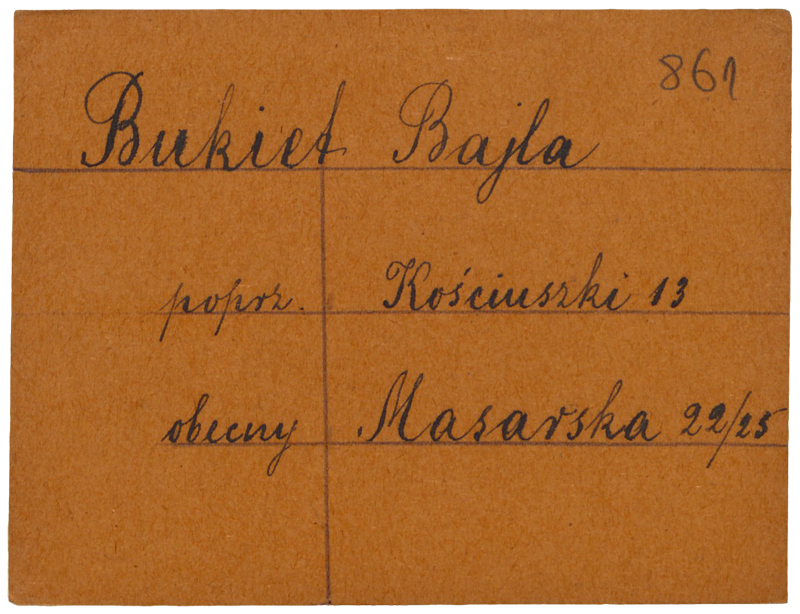 861
Bukiet Bajla
poprz. Kościuszki 13
obecny Masarska 22/25